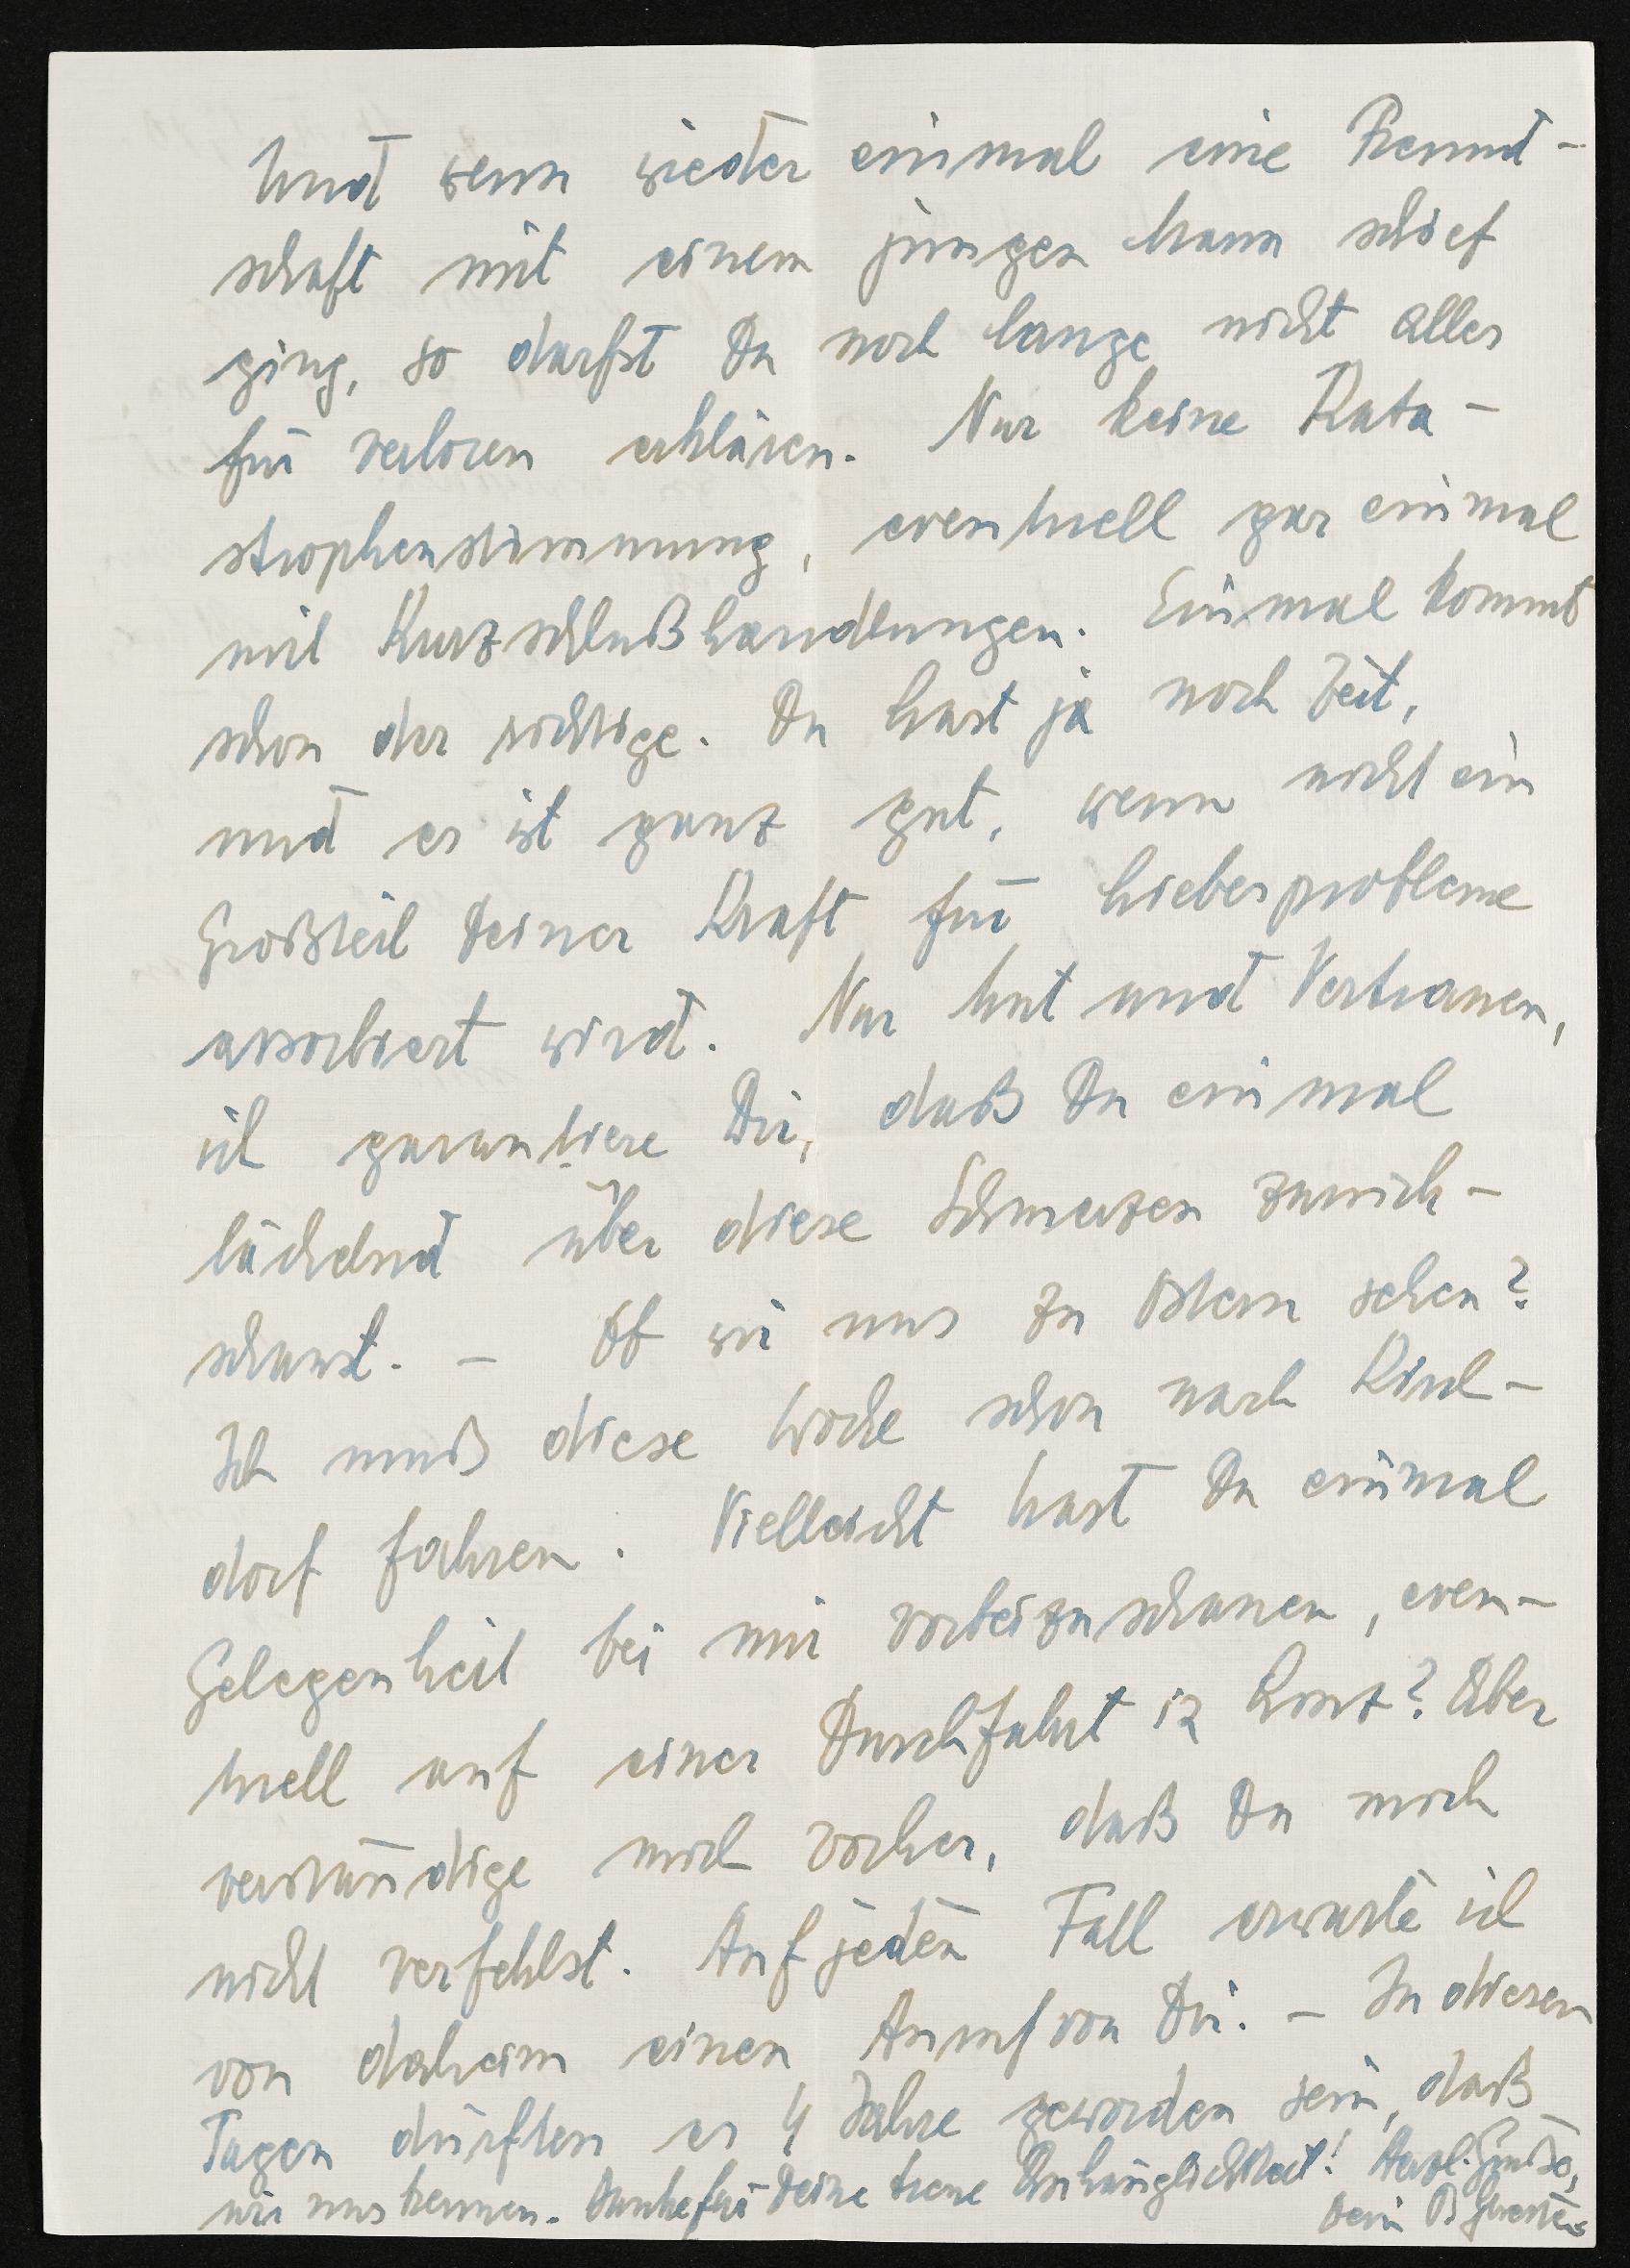 Und wenn wieder einmal eine Freund-
schaft mit einem jungen Mann schief
ging, so darfst Du noch lange nicht alles
für verloren erklären. Nur keine Kata-
strophenstimmung, eventuell gar einmal
mit Kurzschlußhandlungen. Einmal kommt
schon der richtige. Du hast ja noch Zeit,
und es ist ganz gut, wenn nicht ein
Großteil Deiner Kraft für Liebesprobleme
absorbiert wird. Nur Mut und Vertrauen,
ich garantiere Dir, daß Du einmal
lächelnd über diese Schmerzen zurück-
schaust. - Ob wir uns zu Ostern sehen?
Ich muß diese Woche schon nach Kirch-
dorf fahren. Vielleicht hast Du einmal
Gelegenheit bei mir vorbeizuschauen, even-
tuell auf einer Durchfahrt in Linz? Aber
verständige mich vorher, daß Du mich
nicht verfehlst. Auf jeden Fall erwarte ich
von daheim einen Anruf von Dir. - In diesen
Tagen dürften es 4 Jahre geworden sein, daß
wir uns kennen. Danke für Deine treue Anhänglichkeit! Herzl. Grüße,
Dein